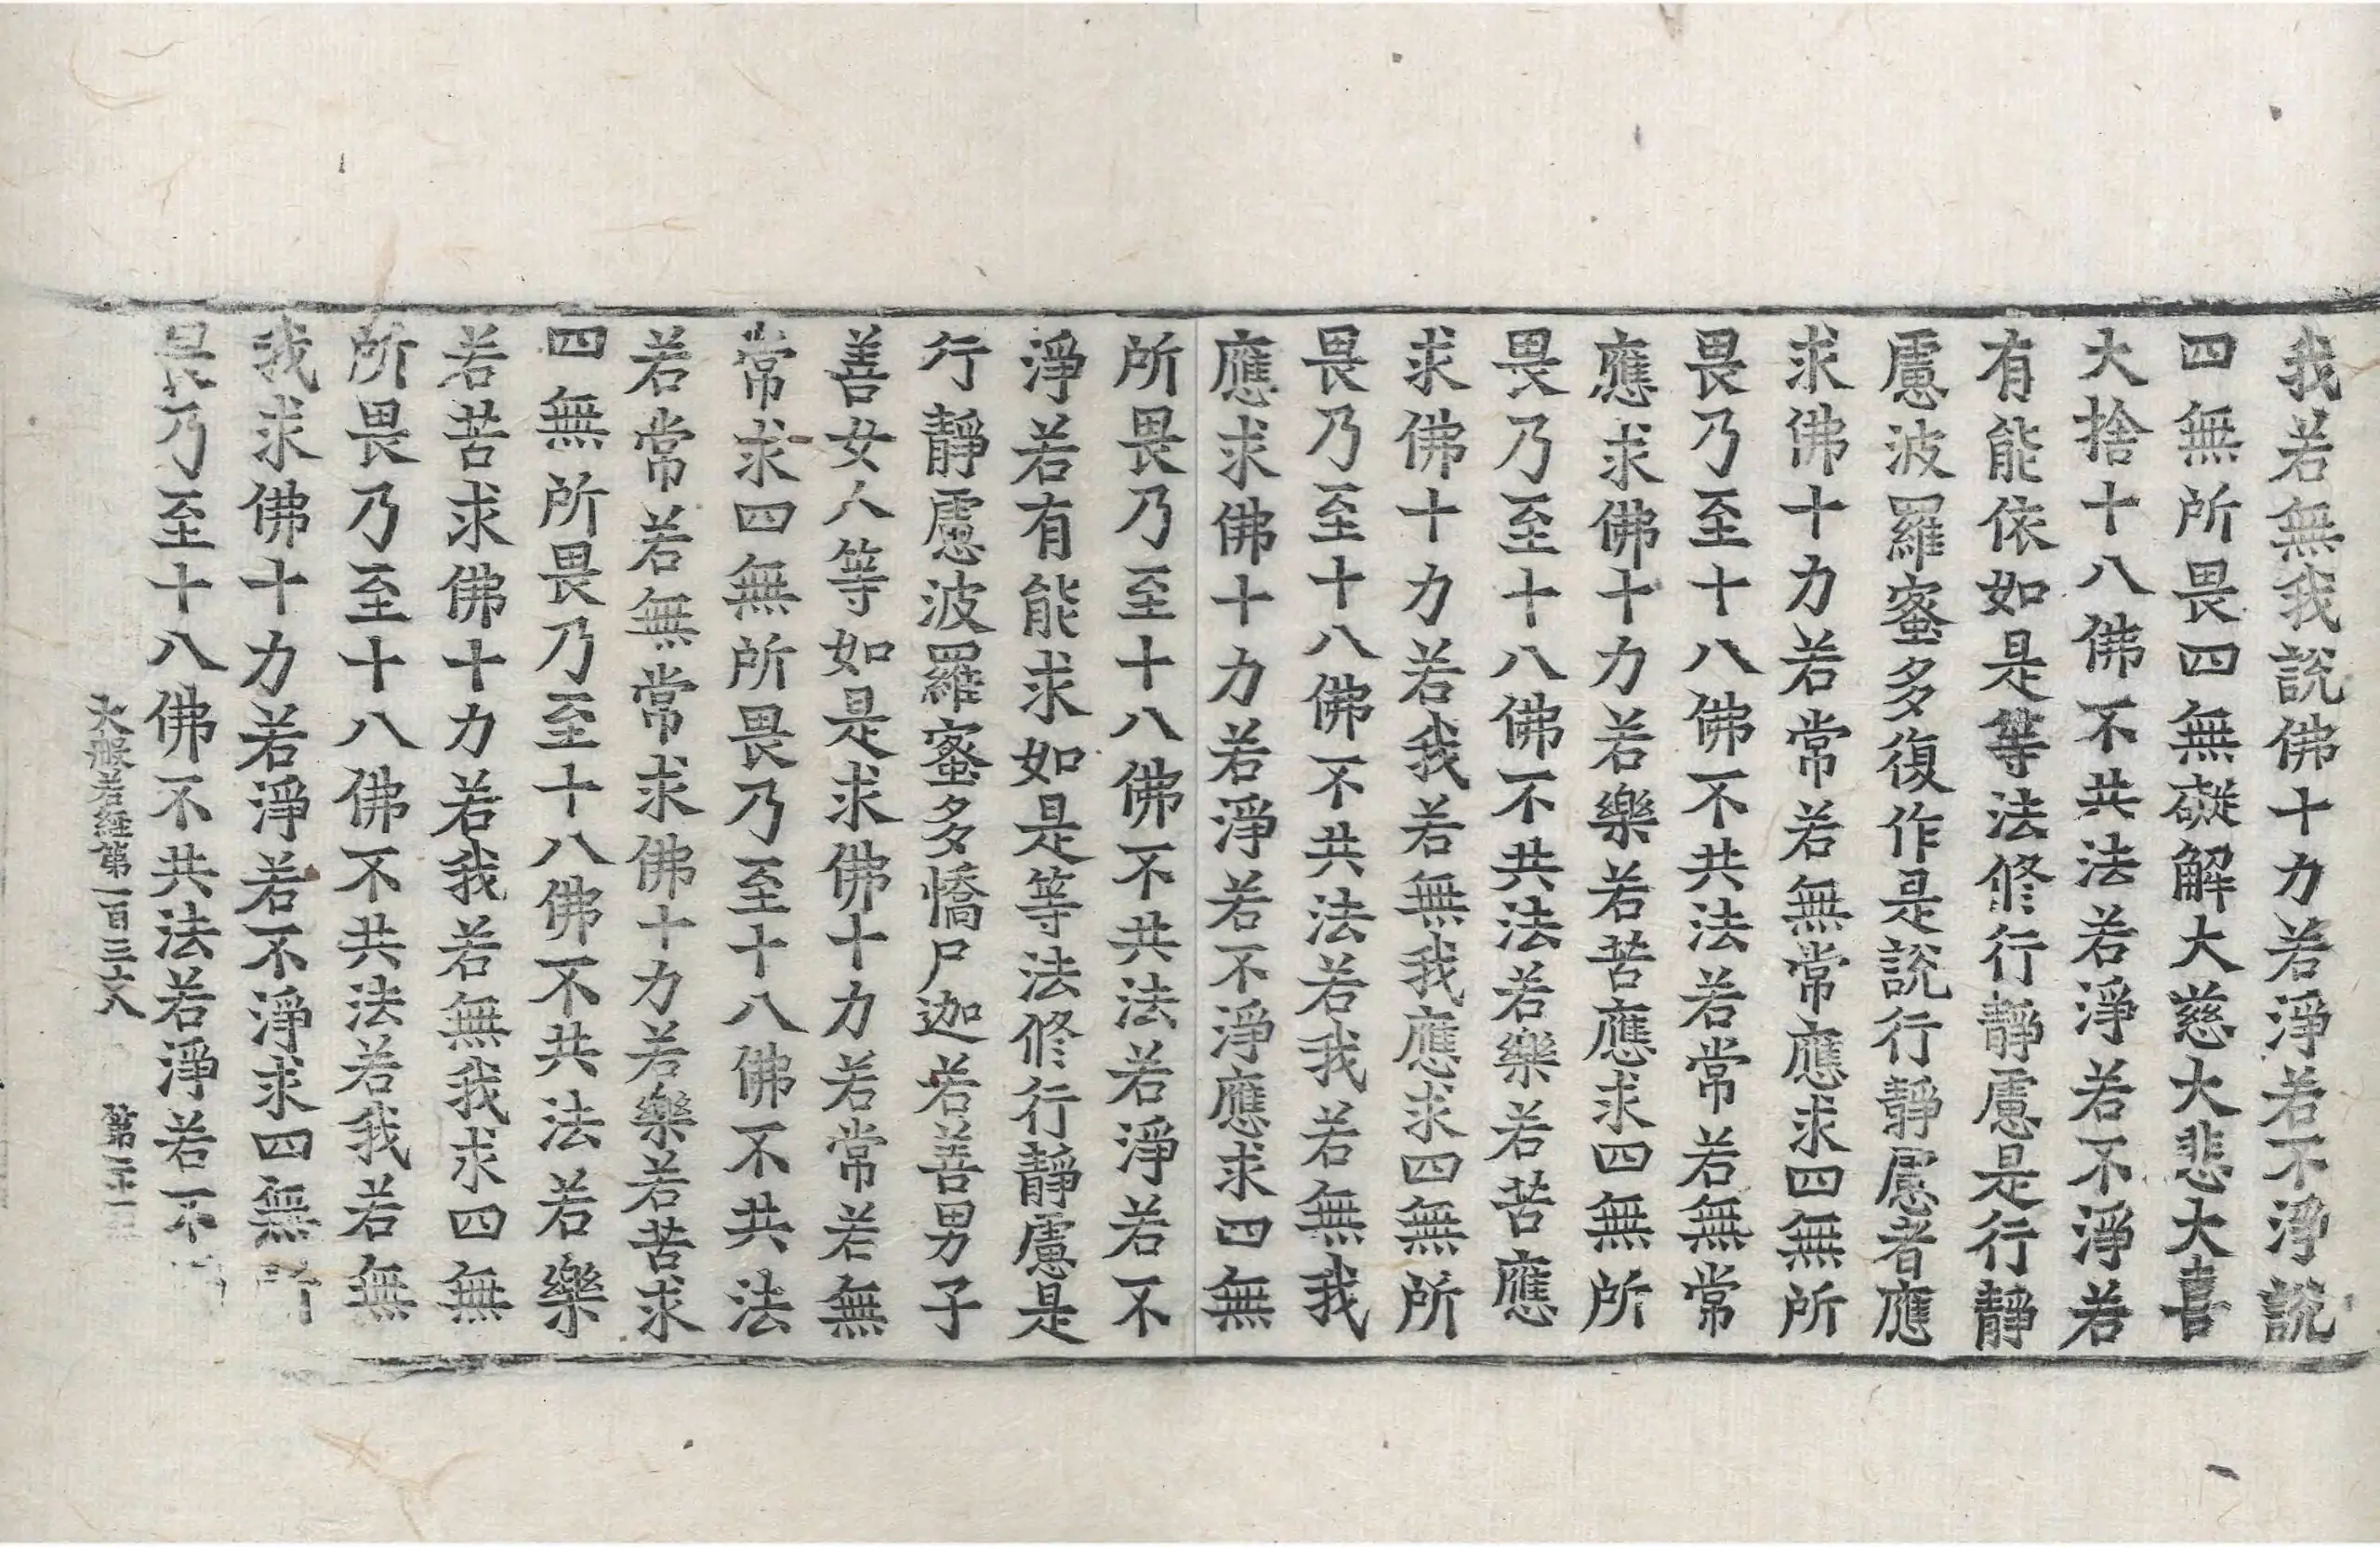 我若無我說佛十力若淨若不淨說
四無所畏四無礙解大慈大悲大喜
大捨十八佛不共法若淨若不淨若
有能依如是等法修行靜慮是行靜
慮波羅蜜多復作是說行靜慮者應
求佛十力若常若無常應求四無所
畏乃至十八佛不共法若常若無常
應求佛十力若樂若苦應求四無所
畏乃至十八佛不共法若樂若苦應
求佛十力若我若無我應求四無所
畏乃至十八佛不共法若我若無我
應求佛十力若淨若不淨應求四無
所畏乃至十八佛不共法若淨若不
淨若有能求如是等法修行靜慮是
行靜慮波羅蜜多憍尸迦若善男子
善女人等如是求佛十力若常若無
常求四無所畏乃至十八佛不共法
若常若無常求佛十力若樂若苦求
四無所畏乃至十八佛不共法若樂
若苦求佛十力若我若無我求四無
所畏乃至十八佛不共法若我若無
我求佛十力若淨若不淨求四無所
畏乃至十八佛不共法若淨若不
大般若經第一百三十八 第二十一